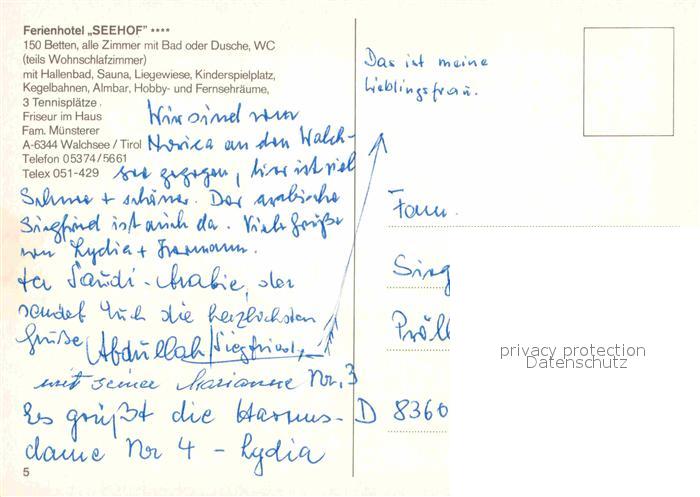 Ferienhotel „SEEHOF" ****
150 Betten, alle Zimmer mit Bad oder Dusche, WC
(teils Wohnschlafzimmer)
mit Hallenbad, Sauna, Liegewiese, Kinderspielplatz,
Kegelbahnen, Almbar, Hobby- und Fernsehräume,
3 Tennisplätze
Friseur im Haus
Fam. Münsterer
A-6344 Walchsee / Tirol
Telefon 05374/5661
Telex 051-429
Wir sind von
an den Walch-
see gezogen, hier ist viel
Schnee + schöner. Der arabische
Siegfried ist auch da. Viele Grüße
von Lydia + Hermann.
Saudi-Arabie, der
sendet Euch die herzlichsten
Grüße Abdullah/Siegfried,
mit seiner Marianne Nr. 3
Es grüßt die Harems-
dame Nr 4 - Lydia
5
Das ist meine
Lieblingsfrau.
Fam.
Sieg
Pröll
D 8360
privacy protection
Datenschutz